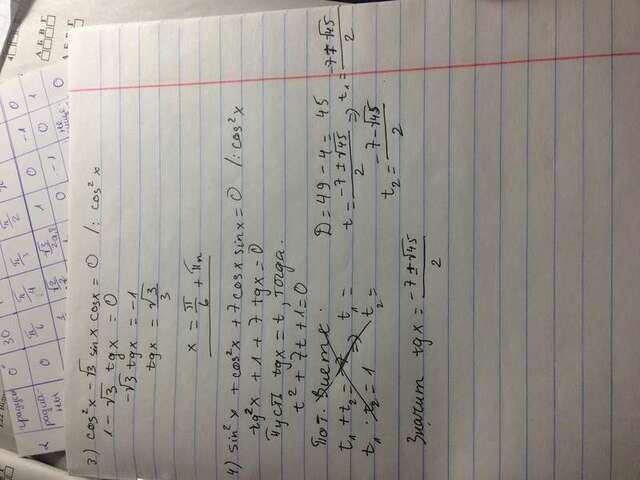 градусы 0° 30
2 радианы 0 π/6 π/4 π/3 π/2 0 -1 0
1 0 -1 0 1
А Б В Г
А Б В Г
3) cos²x - √3 sinx cosx = 0 /: cos²x
1 - √3 tgx = 0
-√3 tgx = -1
tgx = √3/3
x = π/6 + πn
4) sin²x + cos²x + 7cosx sinx = 0 /: cos²x
tg²x + 1 + 7 tgx = 0
Пусть tgx = t, тогда.
t² + 7t + 1 = 0
По т. Виета
t₁ + t₂ = -7 ⇒ t₁ =
t₁ · t₂ = 1 t₂ =
D = 49 - 4 = 45
t = (-7 ± √45)/2 ⇒ t₁ = (-7 ± √45)/2
t₂ = (-7 - √45)/2
Значит tgx = (-7 ± √45)/2